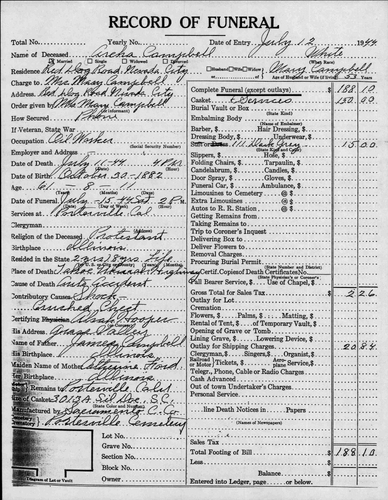 RECORD OF FUNERAL
Total No. Yearly No. Date of Entry July 12 1944
Name of Deceased Campbell White
Residence Red Dog Road Nevada City Mary Campbell
Charge to Mrs Mary Campbell
Address Red Dog Road Nevada City
Order given by Mrs Mary Campbell
How Secured Phone
If Veteran, State War
Occupation Oil Worker
(Social Security Number)
Employer and Address
Date of Death July 11-44 4 P.M.
Date of Birth October 30-1882
Age 61 8 11
Date of Funeral July 15-44 Sat 2 P.M.
Services at Porterville Cal
Clergyman
Religion of the Deceased Protestant
Birthplace Illinois
Resided in the State 2 yrs
Place of Death Highway
Cause of Death Auto Accident
Contributory Causes Shock
Crushed Chest
Certifying Hooper
His Address Grass Valley
Name of Father James Campbell
His Birthplace Illinois
Maiden Name of Mother Ford
Her Birthplace Illinois
Remains to Porterville Calif
of Casket S.C.
Manufactured by Sacramento C. Co
Porterville Cemetery
Lot No.
Grave No.
Section No.
Block No.
Owner
Diagram of Lot or Vault
Complete Funeral (except outlays) $ 188 10
Casket & Services 150 00
Burial Vault or Box
(State Kind)
Embalming Body
Barber, $ Hair Dressing, $
Dressing Body, $ Underwear, $
Suit or Dark Grey 15 00
Slippers, $ Hose, $
Folding Chairs, $ Tarpaulin, $
Candelabrum, $ Candles, $
Door Spray, $ Gloves, $
Funeral Car, $ Ambulance, $
Limousines to Cemetery @ $
Extra Limousines @ $
Autos to R. R. Station @ $
Getting Remains from
Taking Remains to
Trip to Coroner's Inquest
Delivering Box to
Deliver Flowers to
Removal Charges
Procuring Burial Permit
(State Number and District)
Certif. Copies of Death Certificates No.
Pall Bearer Service, $ Use of Chapel, $
Gross Total for Sales Tax $ 2 26
Outlay for Lot
Cremation
Flowers, $ Palms, $ Matting, $
Rental of Tent, $ of Temporary Vault, $
Opening of Grave or Tomb
Lining Grave, $ Lowering Device, $
Outlay for Shipping Charges 20 84
Clergyman, $ Singers, $ Organist, $
Telegr., Phone, Cable or Radio Charges
Cash Advanced
Out of town Undertaker's Charges
Personal Service
line Death Notices in Papers
(Names of Newspapers)
Sales Tax
Total Footing of Bill $ 188 10
Less $
Balance $
Entered into Ledger, page or below.